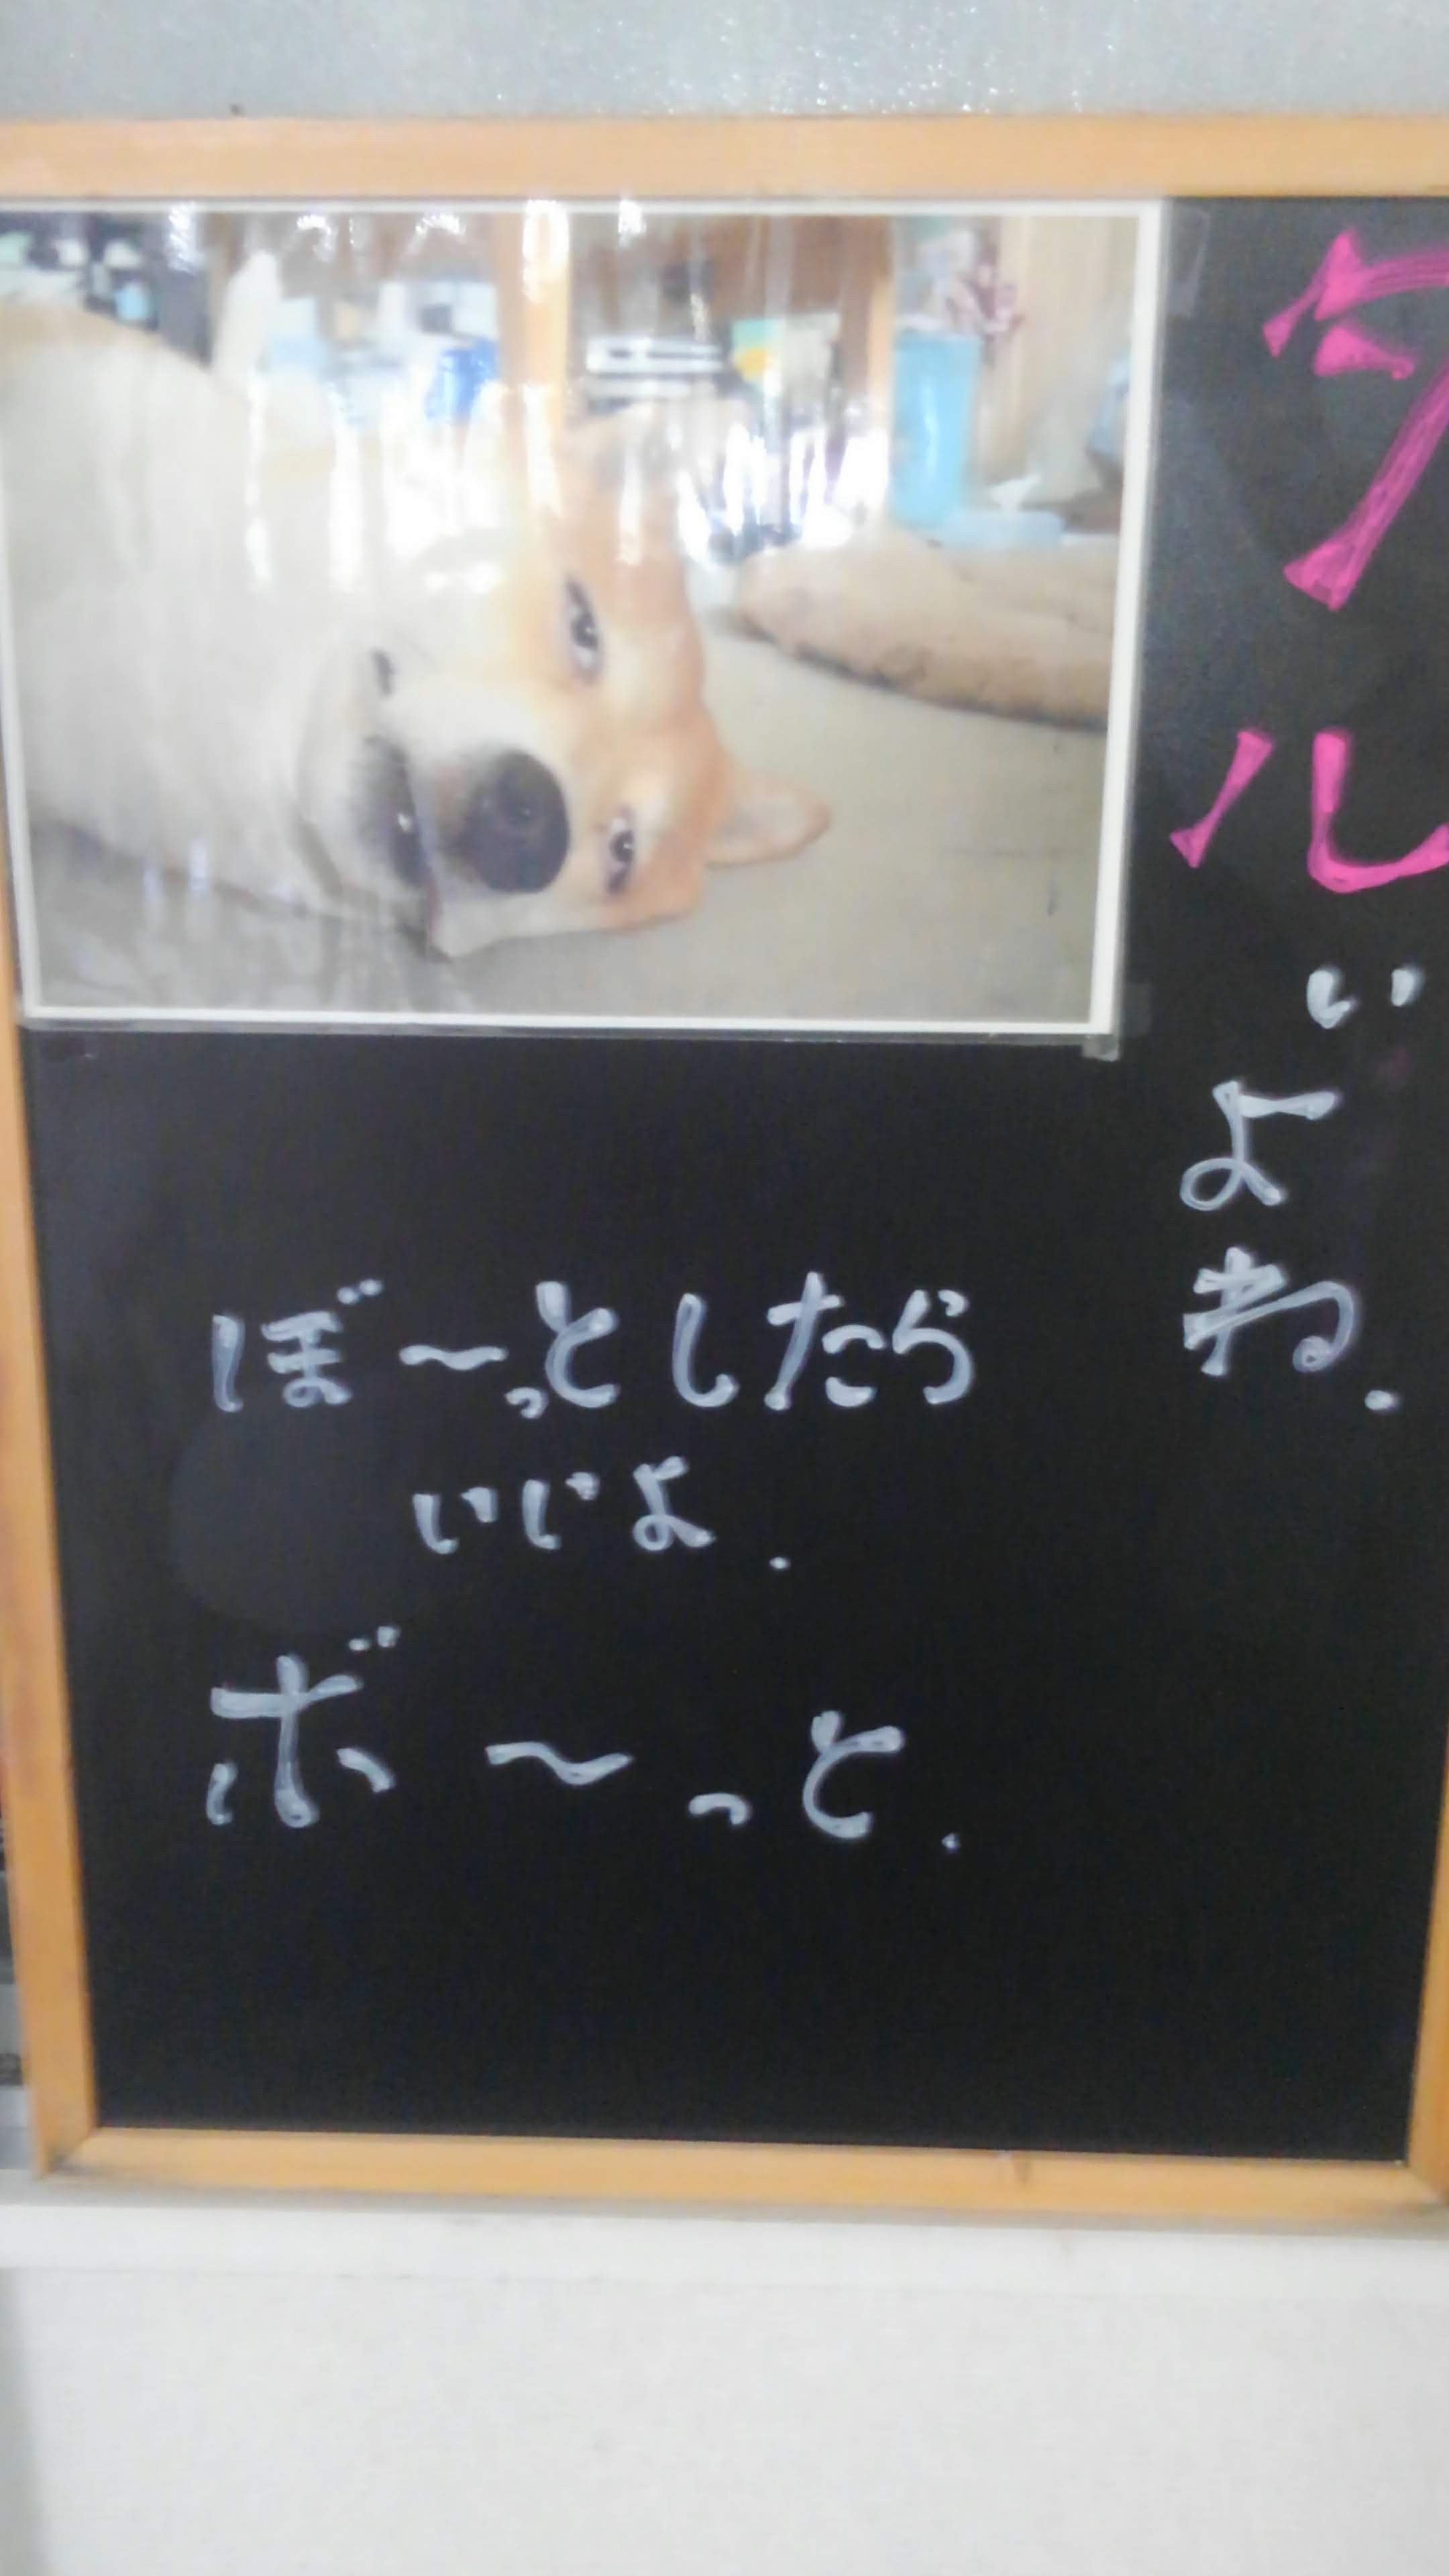 タ
ル
い
よ
ね.
ぼ〜っとしたら
いいよ.
ボ〜っと.